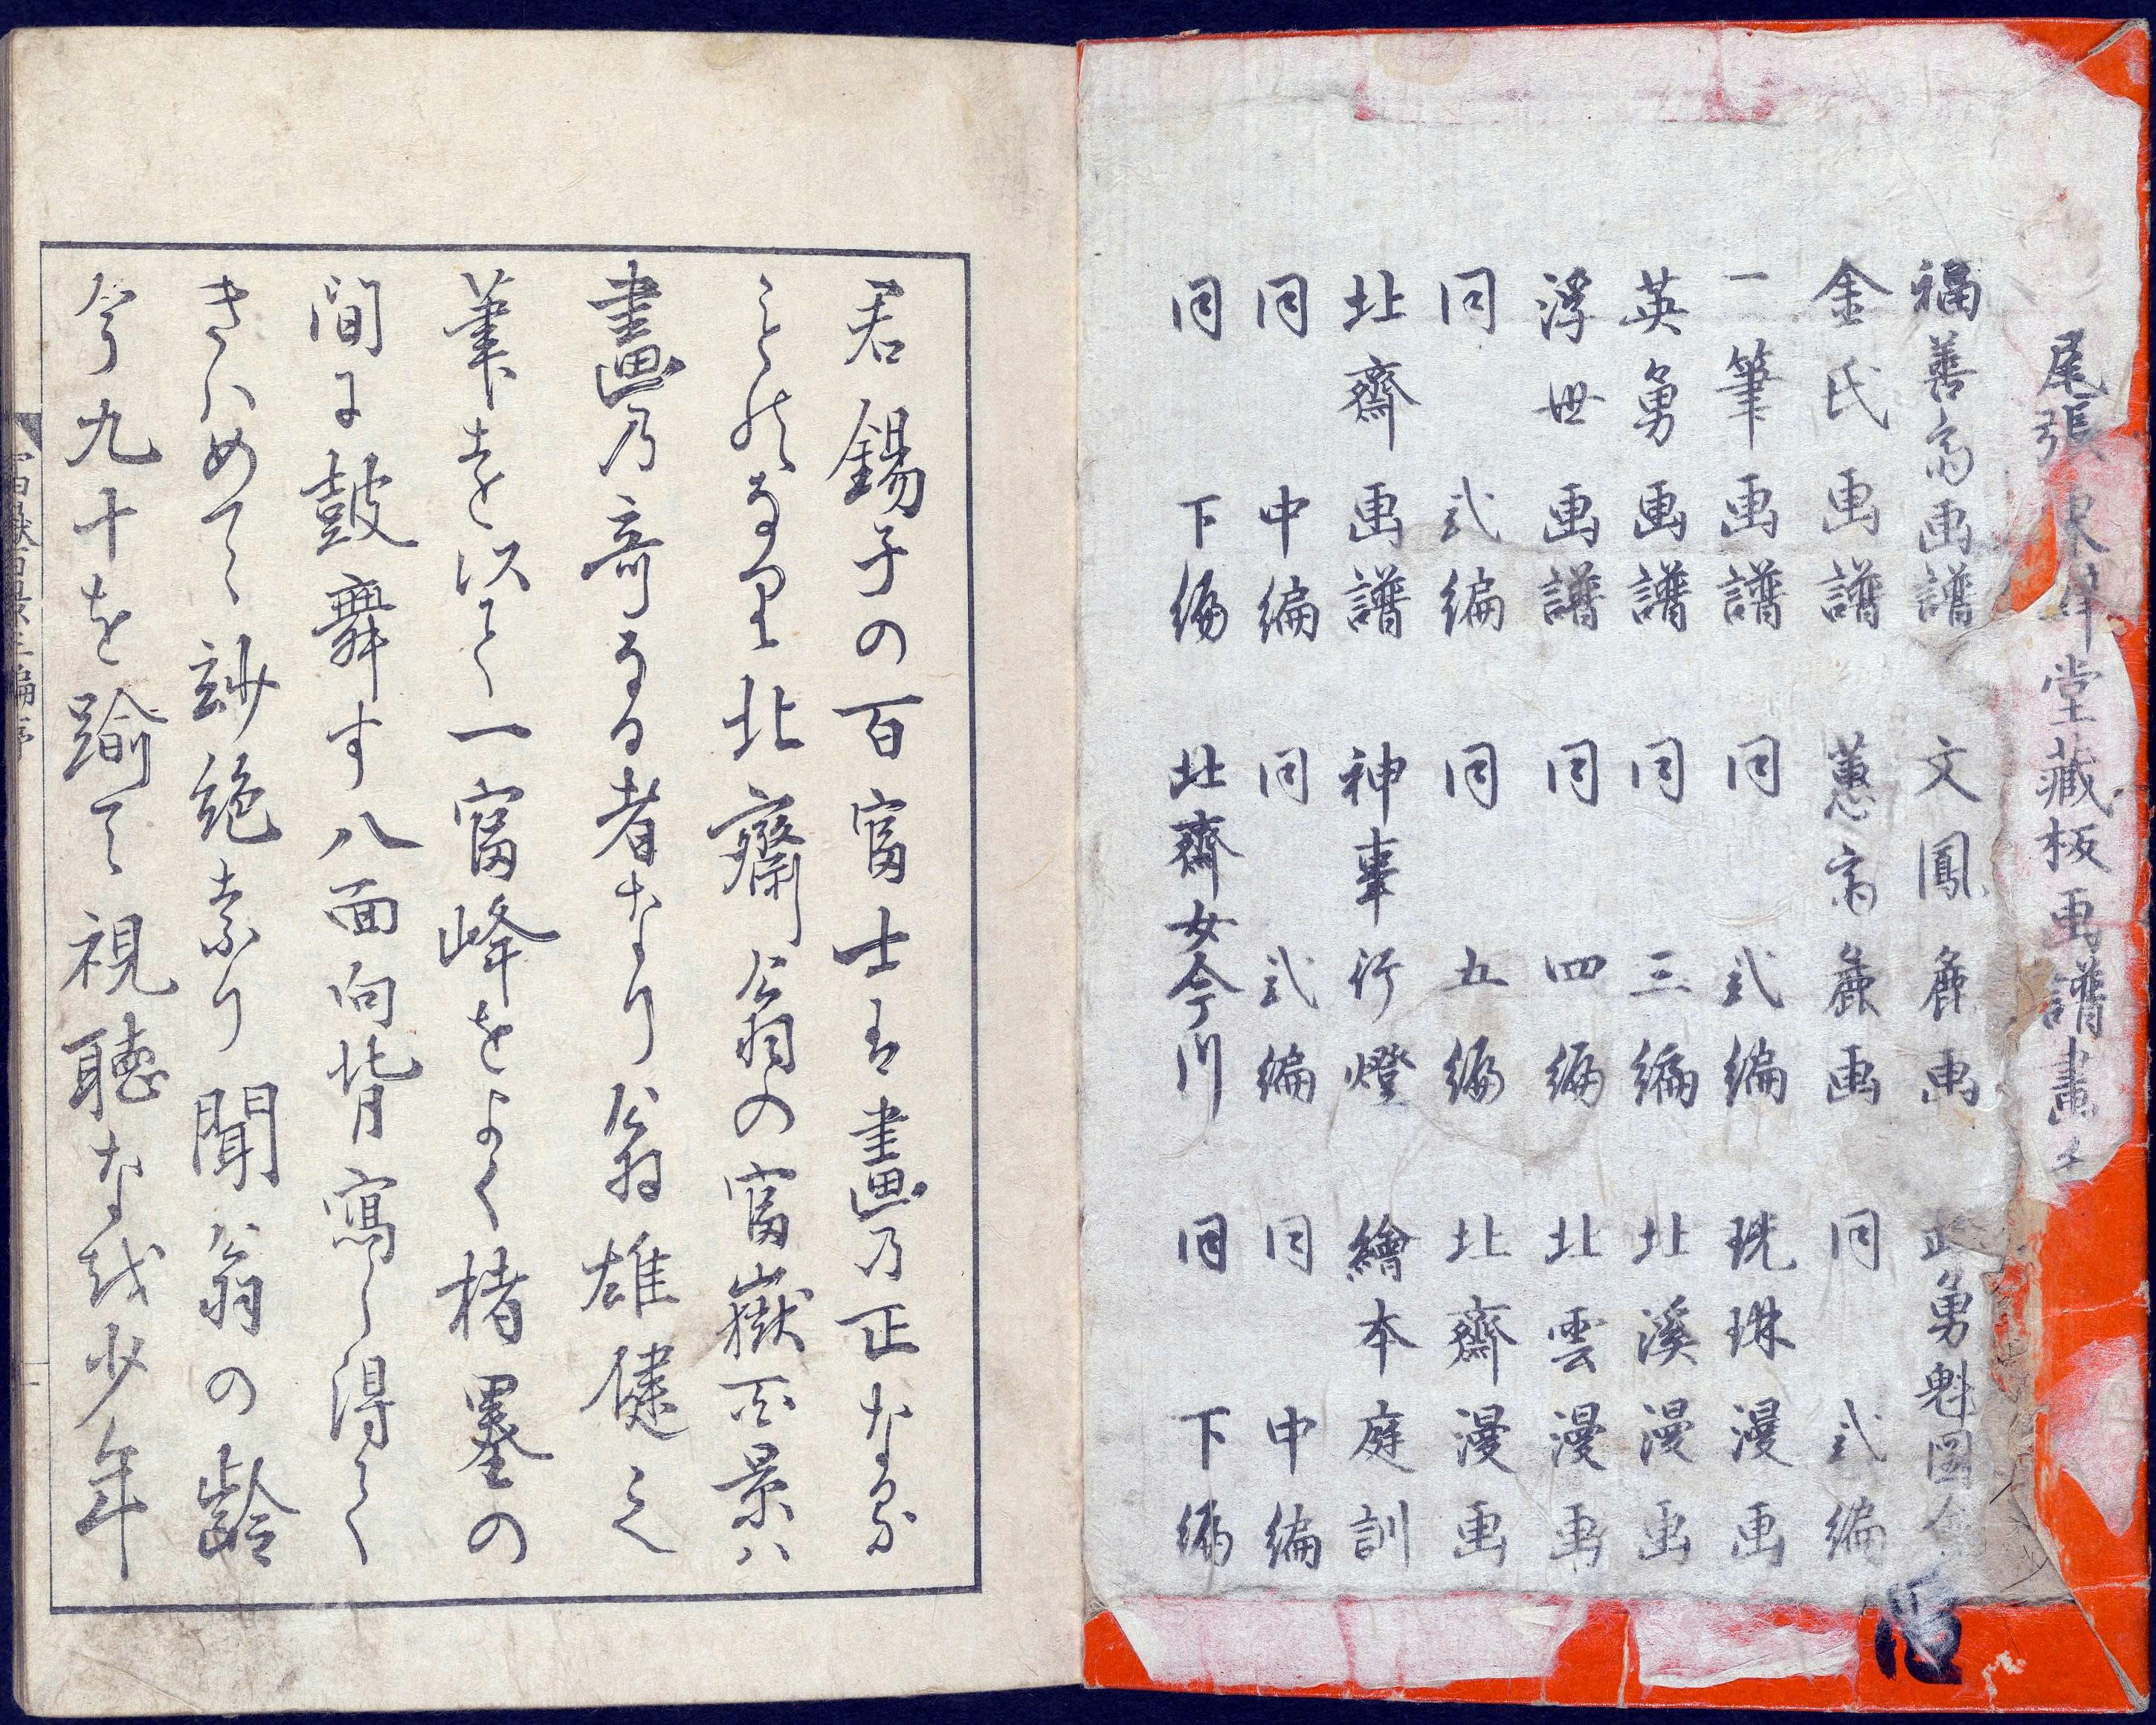 尾張 東壁堂藏板画譜畫
福善斎画譜 文鳳麁画 武勇魁図会
金氏画譜 蕙斎麁画 同 弍編
一筆画譜 同 弍編 珖珠漫画
英勇画譜 同 三編 北溪漫画
浮世画譜 同 四編 北雲漫画
同 弍編 同 五編 北齋漫画
北齋画譜 神事行燈 繪本庭訓
同 中編 同 弍編 同 中編
同 下編 北齋女今川 同 下編
君錫子の百富士は畫乃正なる
ものなり北齋翁の富嶽百景ハ
畫乃奇なる者なり翁雄健之
筆を以て一富峰をよく楮墨の
間に鼓舞す八面向背寫し得て
きハめて玅絶なり聞翁の齢
今九十を踰て視聴なを少年
富嶽百景三編序